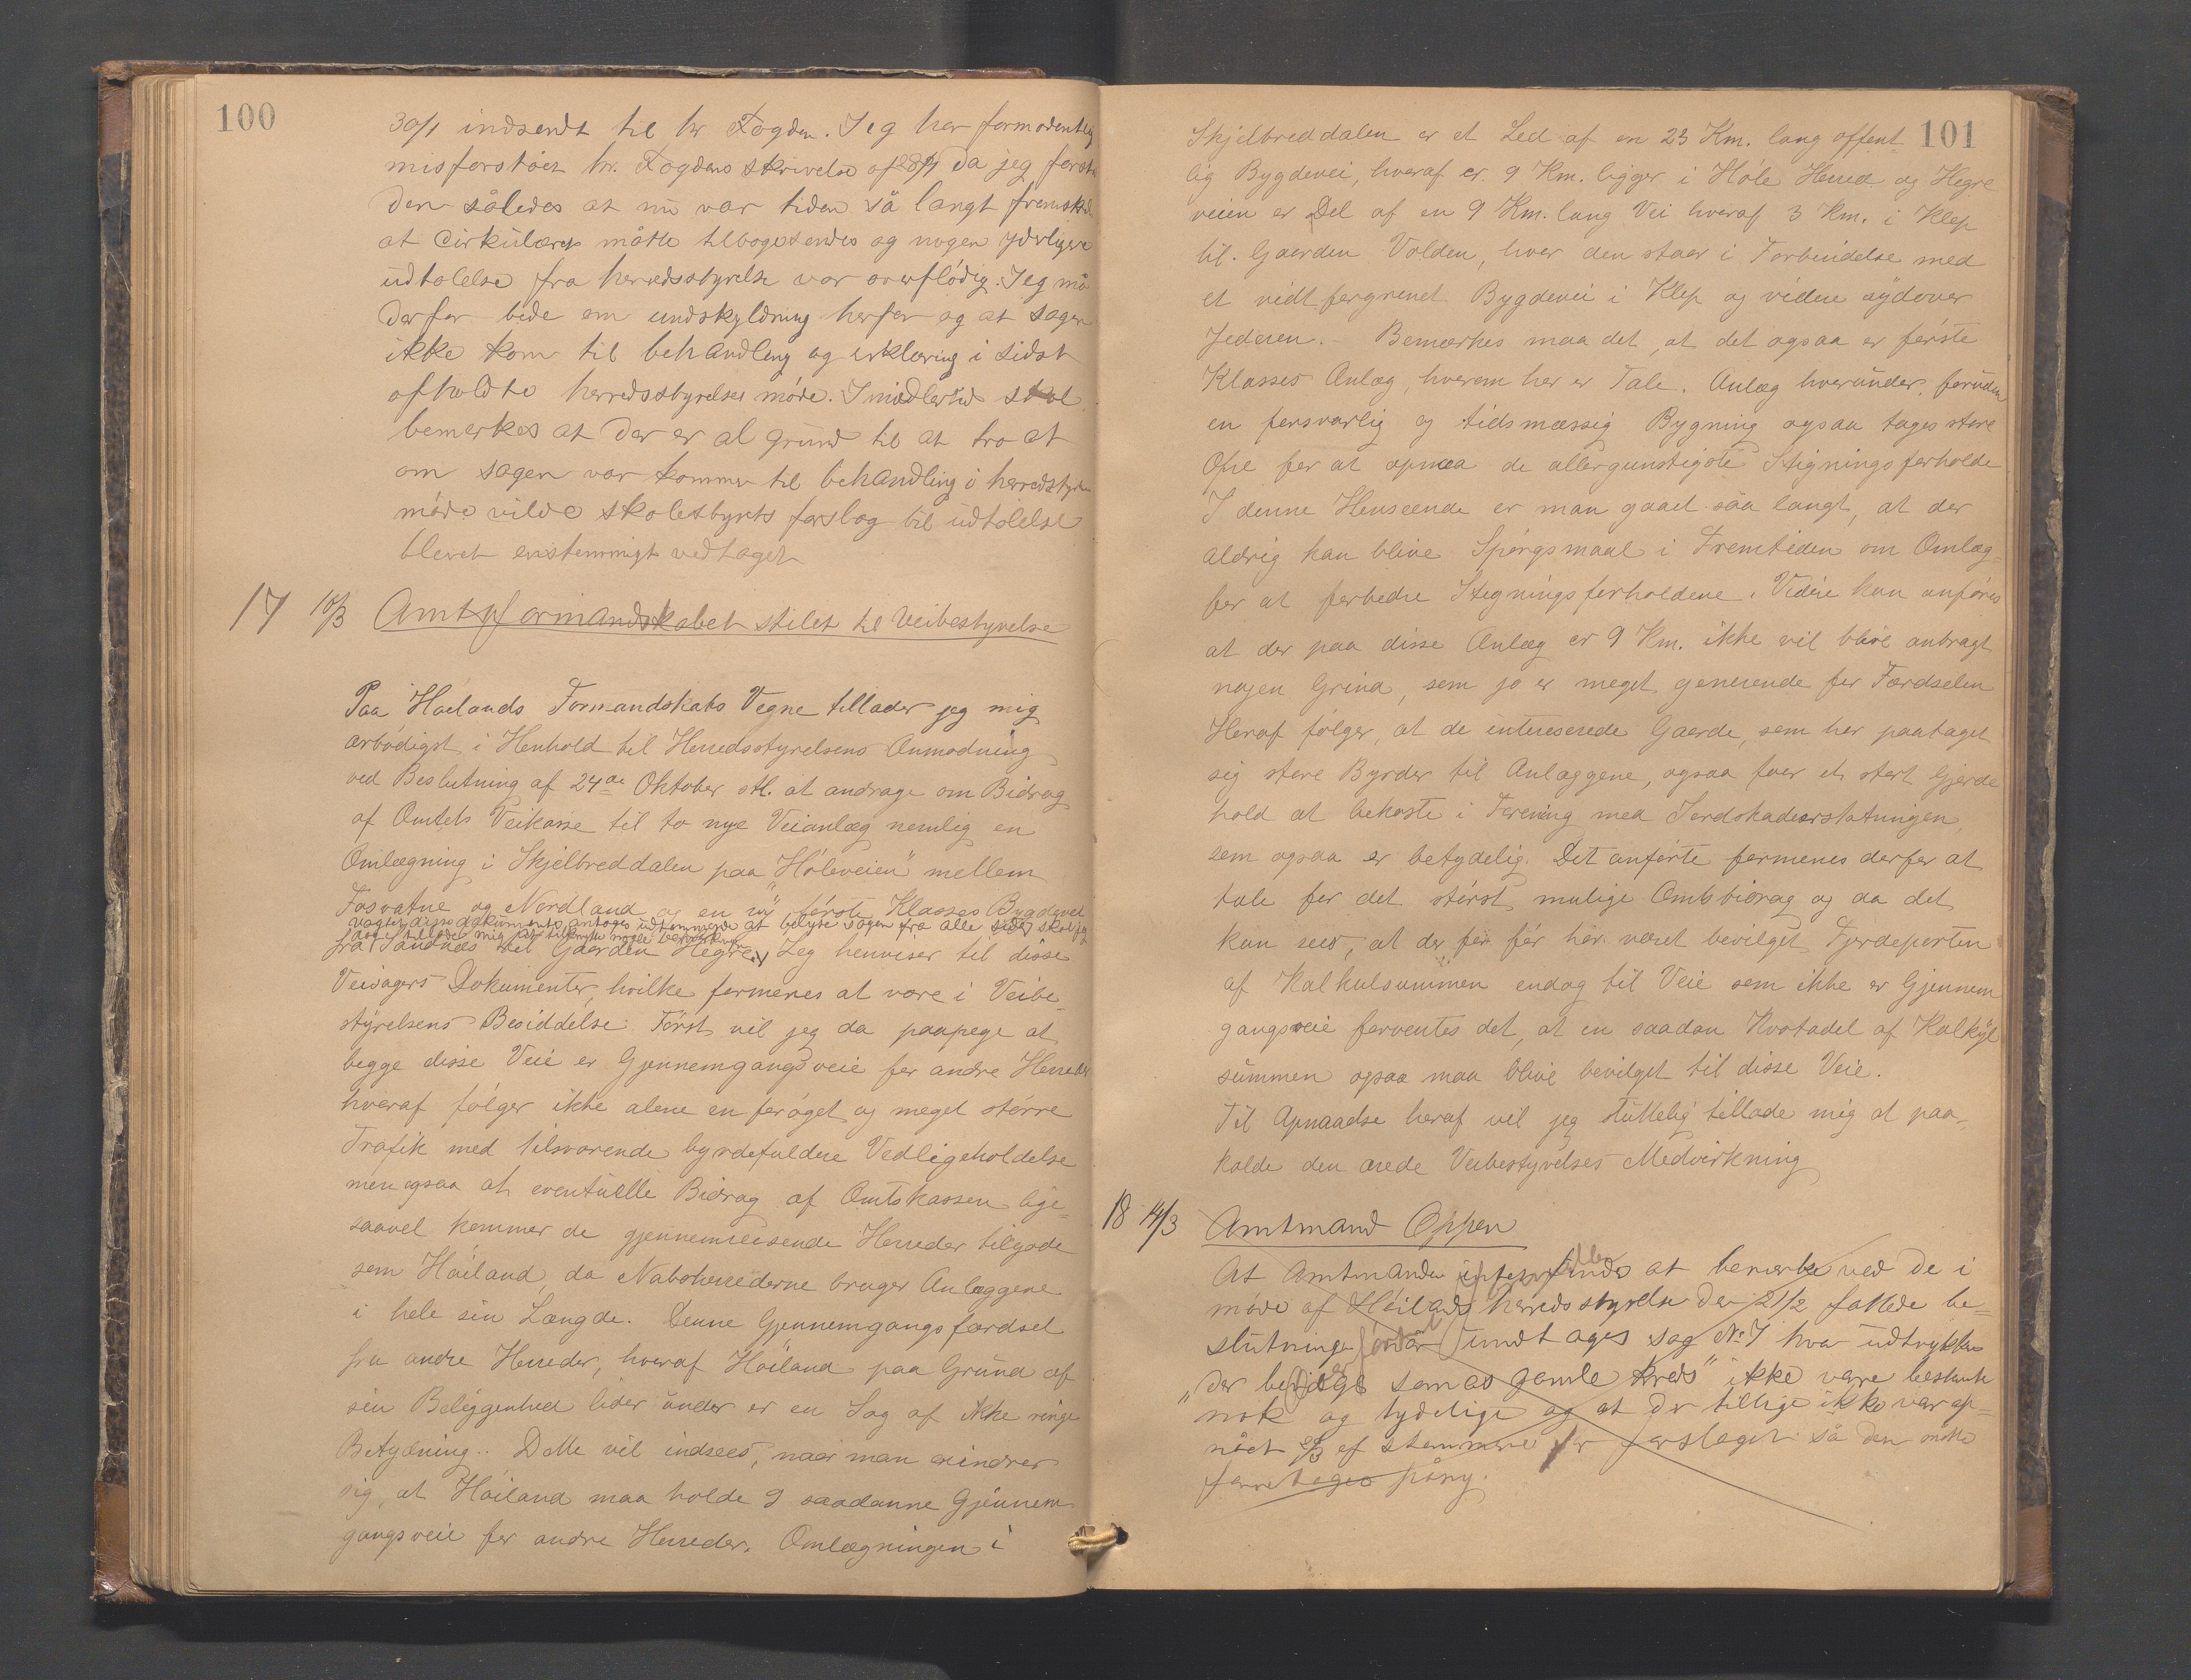 100
30/1 indsendt til hr Fogden. Jeg har formodentlig
misforstået hr. Fogdens skrivelse af 28/1 da jeg forstod
den således at nu var tiden så langt fremskr
at Cirkulæret måtte tilbagesendes og nogen yderligere
udtalelse fra herredsstyrelse var overflödig. Jeg må
derfor bede om undskyldning herfor og at sagen
ikke kom til behandling og erklæring i sidst
afholdte herredsstyrelses möde. Imidlertid skal
bemerkes at der er al grund til at tro at
om sagen var kommen til behandling i herredstyre
möde vilde skolestyrets forslag til udtalelse
blevet enstemmigt vedtaget
17 10/3 Amtsformandskabet stilet til Veibestyrelse
Paa Höilands Formandskabs Vegne tillader jeg mig
ærbödigst i Henhold til Herredsstyrelsens Anmodning
ved Beslutning af 24de Oktober stl. at andrage om Bidrag
af Amtets Veikasse til to nye Veianlæg nemlig en
Omlægning i Skjelbreddalen paa "Höleveien" mellem
Fosvatne og Nordland og en ny förste Klasses Bygdevei
vagter disse dokumenter antages udtömmende at belyse sagen fra alle sider skal jeg
dog tillade mig at tilföie nogle bemerkninger
fra Sandnæs til Gaarden Hegre. Jeg henviser til disse
Veisagers Dokumenter, hvilke formenes at være i Veibe-
styrelsens Besiddelse. Först vil jeg da paapege at
begge disse Veie er Gjennemgangsveie for andre Herreder
hveraf fölger ikke alene en foröget og meget större
Trafik med tilsvarende byrdefuldere Vedligeholdelse
men ogsaa at eventuelle Bidrag af Amtskassen lige-
saavel kommer de gjennemreisende Herreder tilgode
som Höiland, da Naboherrederne bruger Anlæggene
i hele sin Længde. Denne Gjennemgangsfærdsel
fra andre Herreder, hveraf Höiland paa Grund af
sin Beliggenhed lider under er en Sag af ikke ringe
Betydning.. Dette vil indsees, naar man erindrer
sig, at Höiland maa holde 9 saadanne Gjennem-
gangsveie for andre Herreder. Omlægningen i
101
Skjelbreddalen er et Led af en 23 Km. lang offent
lig Bygdevei, hveraf er 9 Km. ligger i Höle Herred og Hegre
veien er Del af en 9 Km. lang Vei hveraf 3 Km. i Klep
til Gaarden Volden, hvor den staar i Forbindelse med
et vidt forgrenet Bygdevei i Klep og videre sydover
Jederen. - Bemærkes maa det, at det ogsaa er förste
Klasses Anlæg, hvorom her er Tale. Anlæg hverunder, foruden
en forsvarlig og tidsmæssig Bygning ogsaa tages store
Ofre for at opnaa de allergunstigste Stigningsforholde
I denne Henseende er man gaaet saa langt, at der
aldrig kan blive Spörgsmaal i Fremtiden om Omlæg-
for at forbedre Stigningsforholdene. Videre kan anföres
at der paa disse Anlæg er 9 Km. ikke vil blive anbragt
nogen Grind, som jo er meget generende for Færdselen
Heraf fölger, at de interesserede Gaarde, som har paataget
sig store Byrder til Anlæggene, ogsaa faar et stort Gjerde
hold at bekoste i Forening med Jordskadeerstatningen,
som ogsaa er betydelig. Det anförte formenes derfor at
tale for det störst mulige Amtsbidrag og da det
kan sees, at der för har været bevilget Fjerdeparten
af Kalkulsummen endog til Veie som ikke er Gjennem
gangsveie forventes det, at en saadan Kvotadel af Kalkyl
summen ogsaa maa blive bevilget til disse Veie.
Til Opnaadse heraf vil jeg sluttelig tillade mig at paa-
kalde den ærede Veibestyrelses Medvirkning
18 14/3 Amtmand Oppen
At Amtmanden intet finder at bemerke ved de i
möde af Höilands herredsstyrelse den 21/2 fattede be-
slutninge undtages sag No 7 hvor udtrykkene
"der som as gamle kreds" ikke være bestemte
nok og tydelige og at der tillige ikke var op-
nået 2/3 af stemmerne for forslaget så den måtte
foretages påny.